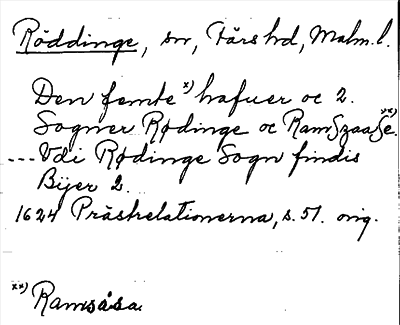 Röddinge, sn, Färs hd, Malm. l.
Den femte x) hafuer oc 2.
Sogner Rødinge oc Ramszaase. xx)
--- Vdi Rødinge Sogn findis
Bijer 2.
1624 Prästrelationerna, s. 51. orig.
xx) Ramsåsa